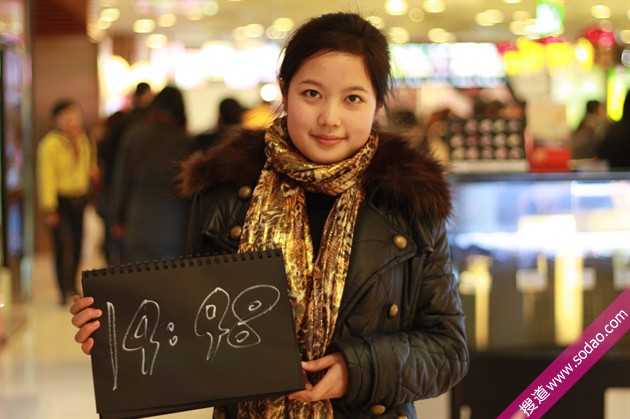 19:98
搜道www.sodao.com